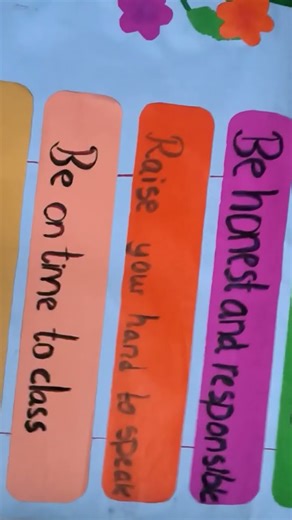 Be honest and responsible
Raise your hand to speak
Be on time to class